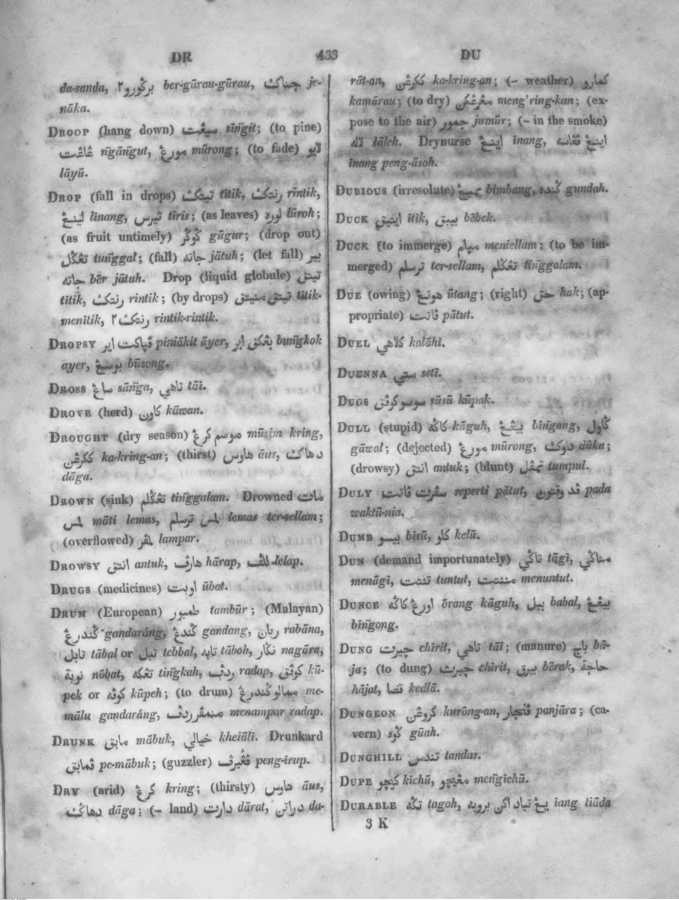 DR
433
DU
da-sanda, برگورو٢ ber-gūrau-gūrau, جناک je-
nāka.
DROOP (hang down) سيڠت sīngit; (to pine)
nīgānīgut, مورڠ mūrong; (to fade) لايو
lāyū.
DROP (fall in drops) تيتک titik, رنتک rintik,
لينڠ linang, تيرس tiris; (as leaves) لوره lūroh;
(as fruit untimely) گوگر gūgur; (drop out)
تڠگل tunīggal; (fall) جاته jātuh; (let fall) بير
جاته bēr jātuh. Drop (liquid globule) تيتق
titik, رنتک rintik; (by drops) تيتق منيتق titik-
menītik, رنتک٢ rintik-rintik.
DROPSY ڤپاکت اير piniākit āyer, بڠکق اير bunīgkok
ayer, بوسڠ būsong.
DROSS ساڠ sānīga, تاهي tāi.
DROVE (herd) کاون kāwan.
DROUGHT (dry season) موسم کرڠ mūsim kring,
ککرڠن ka-kring-an; (thirst) هاوس āus, دهاک
dāga.
DROWN (sink) تڠگلم tinīggalam. Drowned مات
لمس māti lemas, لمس ترسلم lemas ter-sellam;
(overflowed) lampar.
DROWSY انتق antuk, هارف hārap, للف lelap.
DRUGS (medicines) اوبت ūbat.
DRUM (European) طمبور tambūr; (Malayan)
گندرڠ gandarāng, گندڠ gandang, ربان rabāna,
تابل tābal or تبل tebbal, تابه tāboh, نگار nagāra,
نوبة nōbat, تڠکه tinīgkah, ردڤ radap, کوڤق kū-
pek or کوڤه kūpeh; (to drum) ممالو گندرڠ me-
mālu gandarāng, منمڤر ردڤ menampar radap.
DRUNK مابق mābuk, خيالي kheiāli. Drunkard
ڤمابق pe-mābuk; (guzzler) ڤڠيرف peng-irup.
DRY (arid) کرڠ kring; (thirsty) هاوس āus,
دهاک dāga; (– land) دارت dārat, دراتن da-
rāt-an, ککرڠن ka-kring-an; (– weather) کمارو
kamārau; (to dry) مڠرڠکن meng'ring-kan; (ex-
pose to the air) جمور jumūr; (– in the smoke)
لاله lāleh. Drynurse اينڠ inang, اينڠ ڤڠاسه
inang peng-āsoh.
DUBIOUS (irresolute) بمبڠ bimbang, گنده gundah.
DUCK ايتيق itik, بيبق bēbek.
DUCK (to immerge) مپلم meniellam; (to be im-
merged) ترسلم ter-sellam, تڠگلم tinīggalam.
DUE (owing) هوتڠ ūtang; (right) حق hak; (ap-
propriate) ڤاتت pātut.
DUEL کلاهي kalāhi.
DUENNA ستي setī.
DUGS سوسو کوڤق sūsū kūpak.
DULL (stupid) کاگه kāguh, بيڠڠ binīgong, گاول
gāwal; (dejected) مورڠ mūrong, دوک dūka;
(drowsy) انتق antuk; (blunt) تمڤل tumpul.
DULY سڤرت ڤاتت seperti pātut, ڤد وقتون pada
waktū-nia.
DUMB بيسو birū, کلو kelū.
DUN (demand importunately) تاگي tāgi, مناگي
menāgi, تنتت tuntut, مننتت menuntut.
DUNCE اورڠ کاگه ōrang kāguh, ببل babal, بيڠڠ
binīgong.
DUNG چيرت chirit, تاهي tāi; (manure) باج bā-
ja; (to dung) چيرت chirit, بيرق bērak, حاجة
hājat, قضا kedlā.
DUNGEON کروڠن kurōng-an, ڤنجار panjāra; (ca-
vern) گوه gūah.
DUNGHILL تندس tandas.
DUPE کيچو kichū, مڠيچو menīgichū.
DURABLE تگه tagoh, يڠ تياد اکن بروبه iang tiāda
3 K